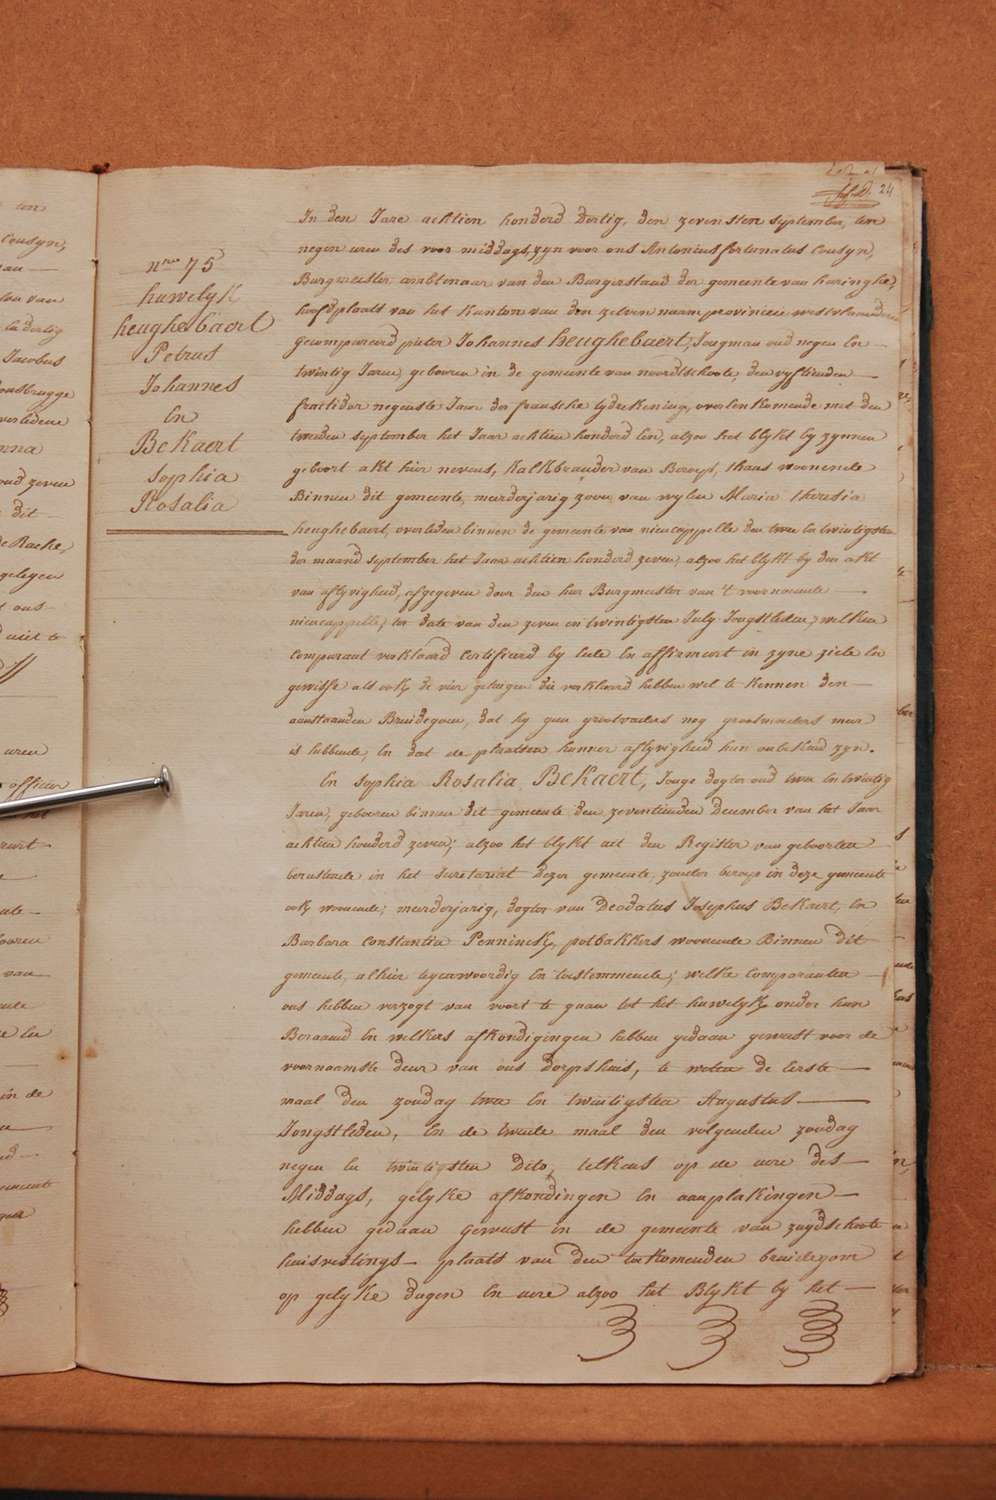 24
nro 75
huwelyk
heughebaert
Petrus
Johannes
En
BeKaert
Sophia
Rosalia
In den Jare achtien honderd dertig, den zevensten september, ten
negen uren des voor middags, zyn voor ons Antonius fortunatus Cousyn,
Burgmeester ambtenaar van den Burgerstand der gemeente van haringhe,
hoofdplaats van het Kanton van den zelven naam provincie westvlaanderen
gecompareerd pieter Johannes heughebaert, Jongman oud negen En
twintig Jaren, gebooren in de gemeente van noordschoote, den vyftienden
fructidor negenste Jaar der fransche tydrekening, overeenkomende met den
tweeden september het Jaar achtien honderd Een, alzoo het blykt by zynen
geboort akt hier nevens, KalKbrander van Beroep, thans woonende
Binnen dit gemeente, meerderjarig zoon van wylen Maria theresia
heughebaert, overleden binnen de gemeente van nieucappelle den twee En twintigsten
der maand september het Jaar achtien honderd zeven, alzoo het blykt by den akt
van aflyvigheid, afgegeven door den heer Burgmeester van 't voornoemde
nieucappelle, ter date van den zeven en twintigsten July Jongstleden, welken
Comparant verklaard Certifieerd by Eede En affirmeert in zyne ziele En
gewisse als ook de vier getuigen die verklaard hebben wel te Kennen den
aanstaanden Bruidegom, dat hy geen grootvaders nog grootmoeders meer
is hebbende, En dat de plaatsen hunner aflyvigheid hun onbekend zyn.
En Sophia Rosalia BeKaert, Jonge dogter oud twee En twintig
Jaren, gebooren binnen dit gemeente den zeventienden December van het Jaar
achtien honderd zeven; alzoo het blykt uit den Register van geboorten
berustende in het secretariat Dezer gemeente, zonder beroep in deze gemeente
ook woonende; meerderjarig, dogter van Deodatus Josephus BeKaert, En
Barbara Constantia Penninck, potbakkers woonende Binnen dit
gemeente, alhier tegenwoordig En toestemmende; welke Comparanten
ons hebben verzogt van voort te gaan tot het huwelyk onder hun
Beraamd En welkers afkondigingen hebben gedaan geweest voor de
voornaamste deur van ons dorpshuis, te weten de Eerste
maal den zondag twee En twintigsten Augustus
Jongstleden, En de tweede maal den volgenden zondag
negen En twintigsten Dito, telkens op de uere des
Middags, gelyke afkondingen En aanplakingen
hebben gedaan geweest in de gemeente van zuydschoote
huisvestings plaats van den toekomenden bruidegom
op gelyke dagen En uere alzoo het Blykt by het